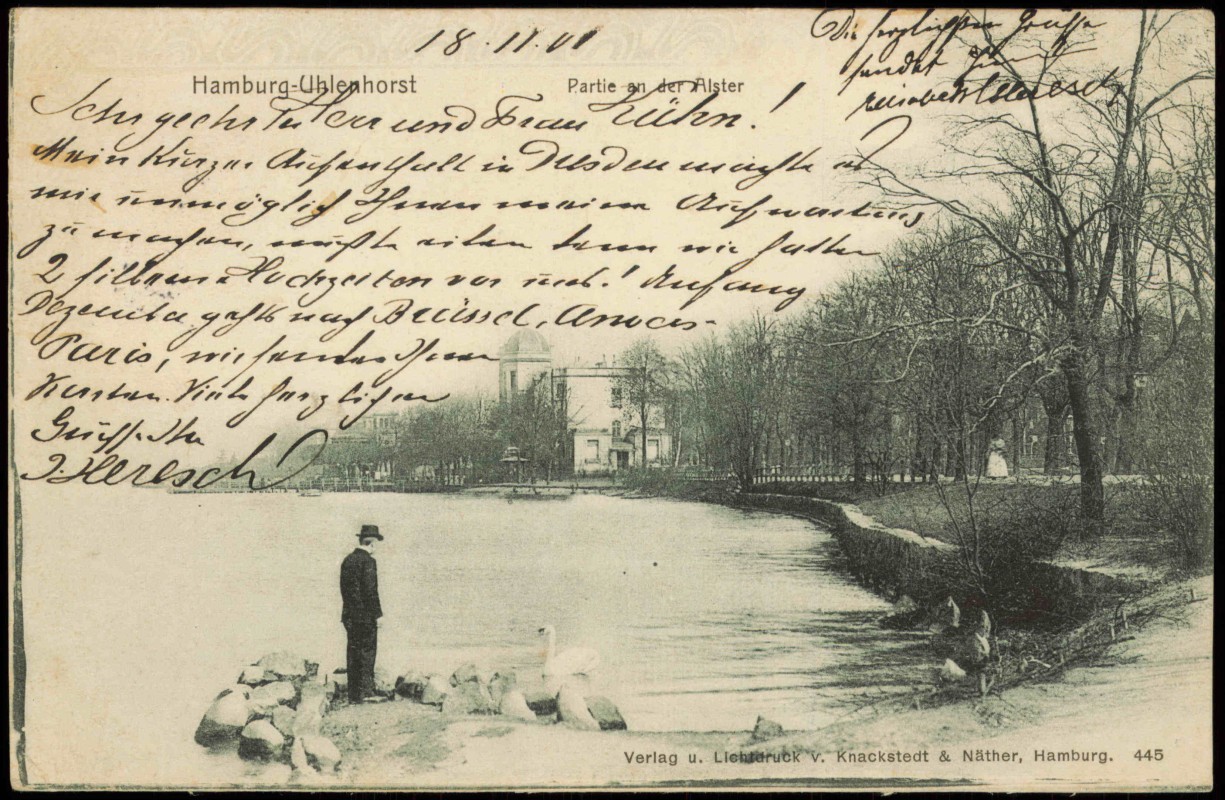 18.11.01
Die herzlichsten Grüße
sendet Ihnen
Elisabeth Heresch
Hamburg-Uhlenhorst
Partie an der Alster
Sehr geehrter Herr und Frau Kühn!
Mein kurzer Aufenthalt in Dresden machte es
mir unmöglich Ihnen meine Aufwartung
zu machen, mußte eilen denn wir hatten
2 silberne Hochzeiten vor uns! Anfang
Dezember gehts nach Brüssel, Anvers-
Paris, wir senden Ihnen
Karten. Viele herzlichen
Grüße Ihr
J. Heresch
Verlag u. Lichtdruck v. Knackstedt & Näther, Hamburg. 445